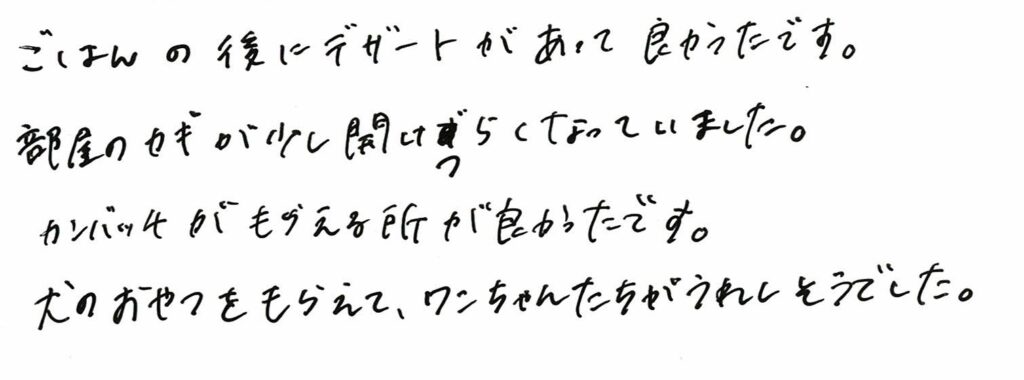 ごはんの後にデザートがあって良かったです。
部屋のカギが少し開けづらくなっていました。
カンバッチがもらえる所が良かったです。
犬のおやつをもらえて、ワンちゃんたちがうれしそうでした。